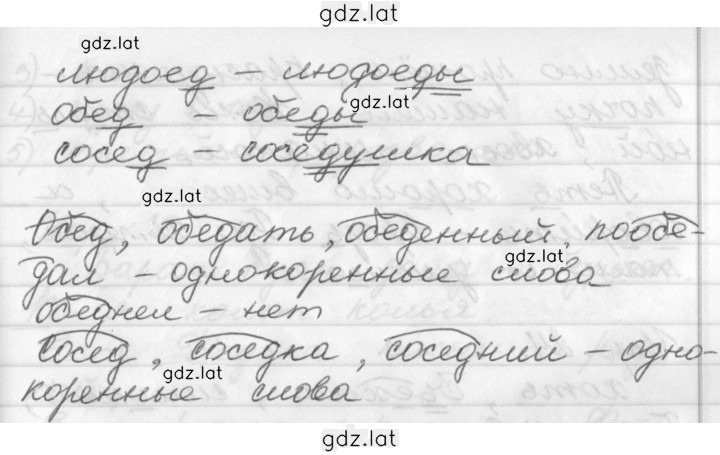 gdz.lat
gdz.lat
людоед – людоеды
обед – обеды
gdz.lat
сосед – соседушка
gdz.lat
Обед, обедать, обеденный, пообе-
дал – однокоренные слова
gdz.lat
обеднел – нет
сосед, соседка, соседний – одно-
gdz.lat
коренные слова
gdz.lat